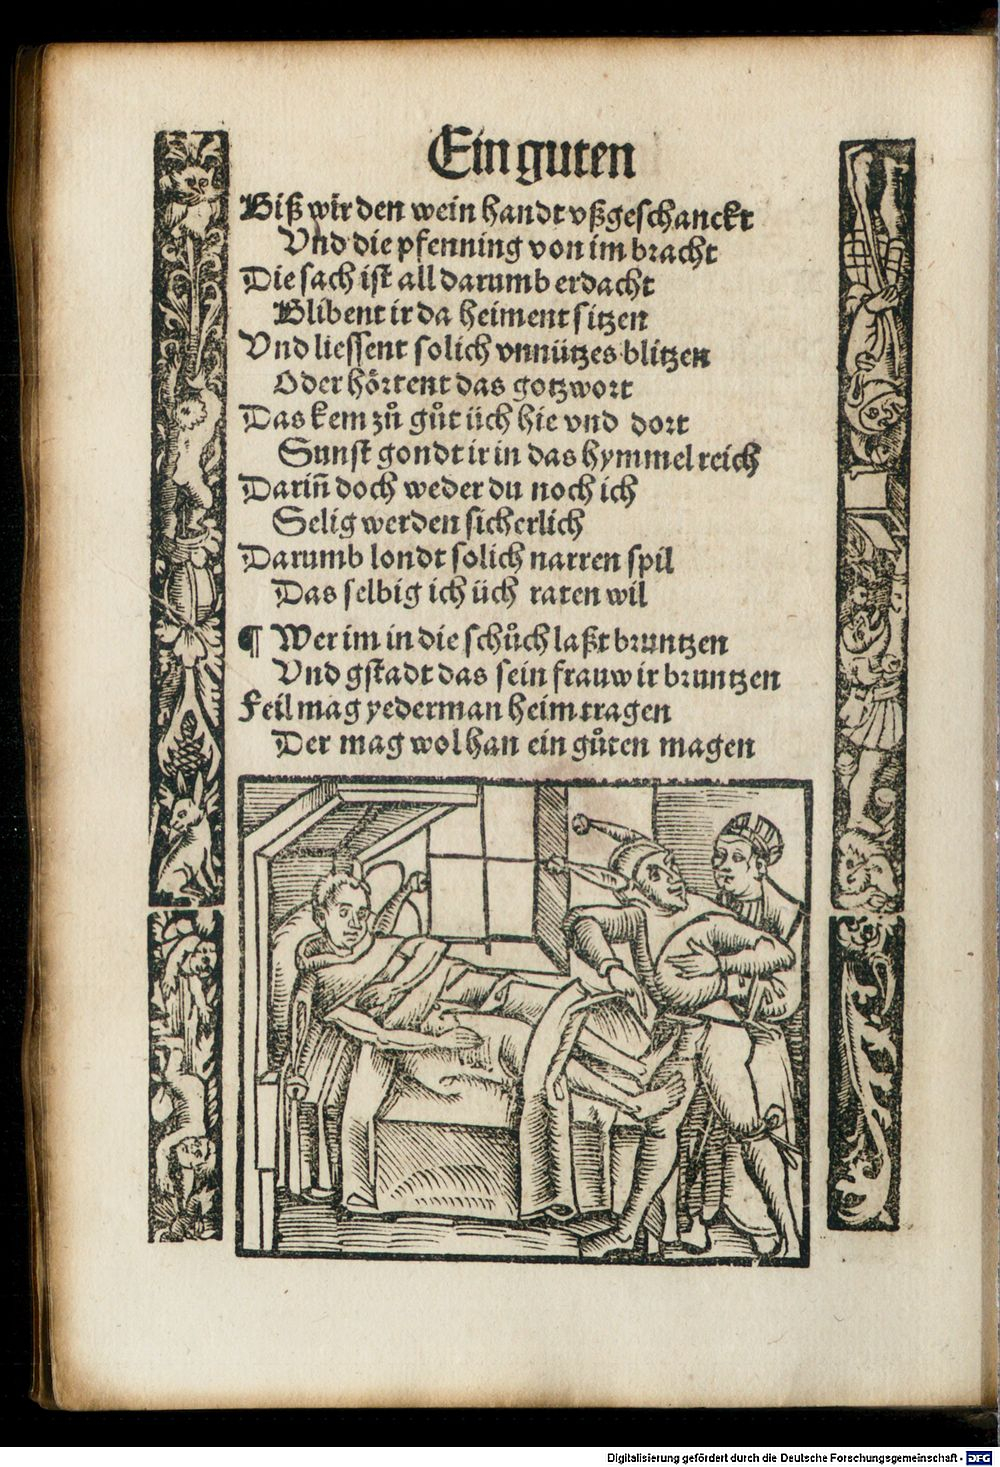 Ein guten
Biß wir den wein handt vßgeschanckt
Vnd die pfenning von im bracht
Die sach ist all darumb erdacht
Blibent ir da heiment sitzen
Vnd liessent solich vnnützes blitzen
Oder hörtent das gotzwort
Das kem zů gůt üch hie vnd dort
Sunst gondt ir in das hymmelreich
Dariñ doch weder du noch ich
Selig werden sicherlich
Darumb londt solich narren spil
Das selbig ich üch raten wil
¶ Wer im in die schůch laßt bruntzen
Vnd gstadt das sein frauw ir bruntzen
Feil mag yederman heim tragen
Der mag wol han ein gůten magen
Digitalisierung gefördert durch die Deutsche Forschungsgemeinschaft - DFG